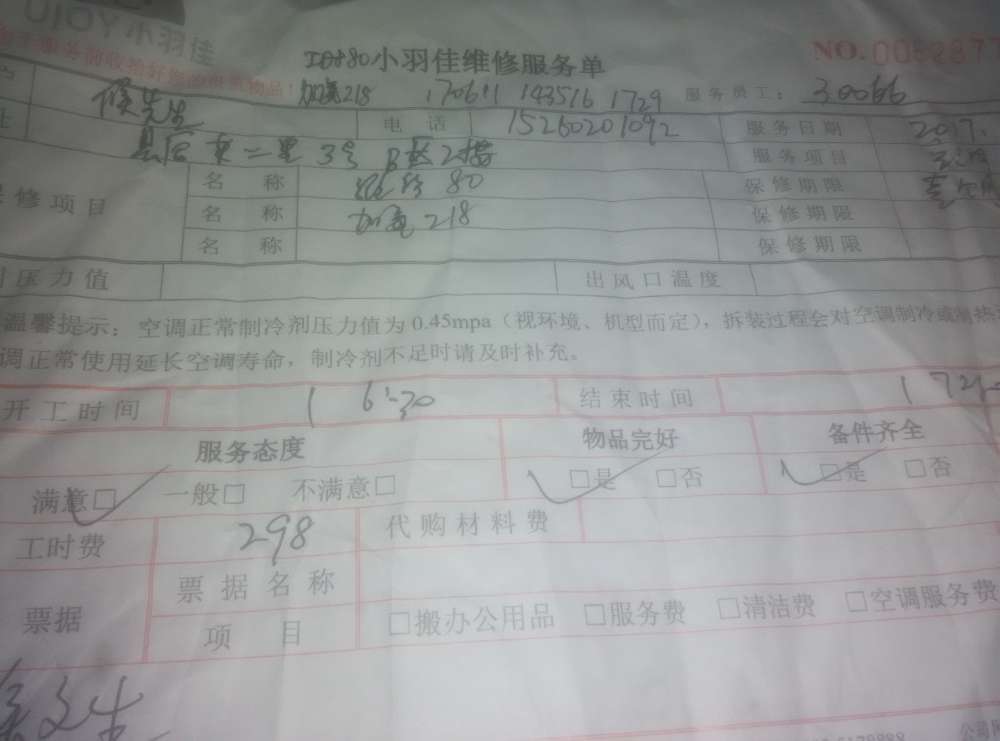 UIOY小羽佳
服务前收拾好您的贵重物品！
小羽佳维修服务单
NO.
加氟218 170611 143516 1729 服务员工：30066
先生 电话 15260201092 服务日期 2017.
二里3号B 2 服务项目
保修项目 名称 80 保修期限
名称 加氟218 保修期限
名称 保修期限
压力值 出风口温度
温馨提示：空调正常制冷剂压力值为0.45mpa（视环境、机型而定），拆装过程会对空调制冷或制热
调正常使用延长空调寿命，制冷剂不足时请及时补充。
开工时间 16:30 结束时间
服务态度 物品完好 备件齐全
满意□ 一般□ 不满意□ □是 □否 □是 □否
工时费 298 代购材料费
票据 票据名称
项目 □搬办公用品 □服务费 □清洁费 □空调服务费